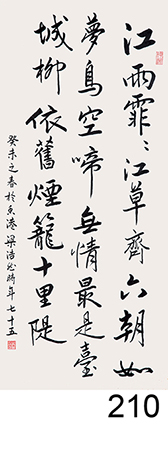 江雨霏〻江草齊六朝如
夢鳥空啼無情最是臺
城柳依舊煙籠十里隄
癸未之春於香港梁浩然時年七十五
210